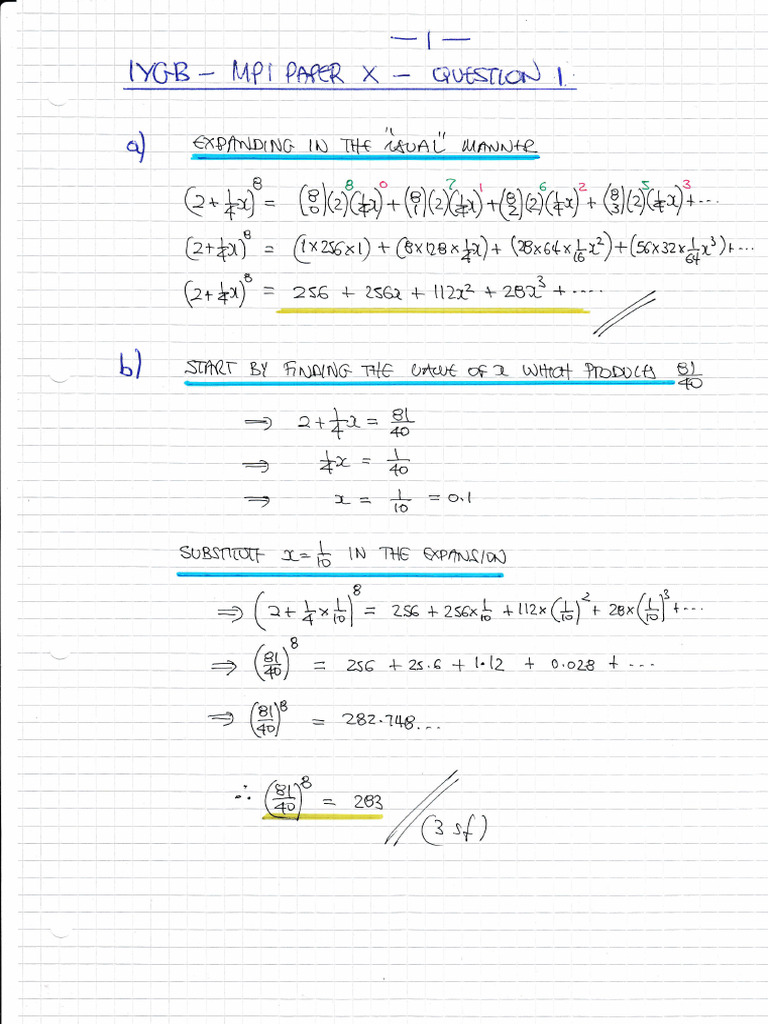 — 1 —
IYGB – MP1 PAPER X – QUESTION 1
a) EXPANDING IN THE "USUAL" MANNER
(2+¼x)⁸ = (8 0)(2)⁸(¼x)⁰ + (8 1)(2)⁷(¼x)¹ + (8 2)(2)⁶(¼x)² + (8 3)(2)⁵(¼x)³ + ....
(2+¼x)⁸ = (1×256×1) + (8×128×¼x) + (28×64×1/16x²) + (56×32×1/64x³) + ...
(2+¼x)⁸ = 256 + 256x + 112x² + 28x³ + ....
b) START BY FINDING THE VALUE OF x WHICH PRODUCES 81/40
⇒ 2+¼x = 81/40
⇒ ¼x = 1/40
⇒ x = 1/10 = 0.1
SUBSTITUTE x = 1/10 IN THE EXPANSION
⇒ (2 + ¼ × 1/10)⁸ = 256 + 256×1/10 + 112×(1/10)² + 28×(1/10)³ + ...
⇒ (81/40)⁸ = 256 + 25.6 + 1.12 + 0.028 + ...
⇒ (81/40)⁸ = 282.748...
∴ (81/40)⁸ = 283
(3 sf)